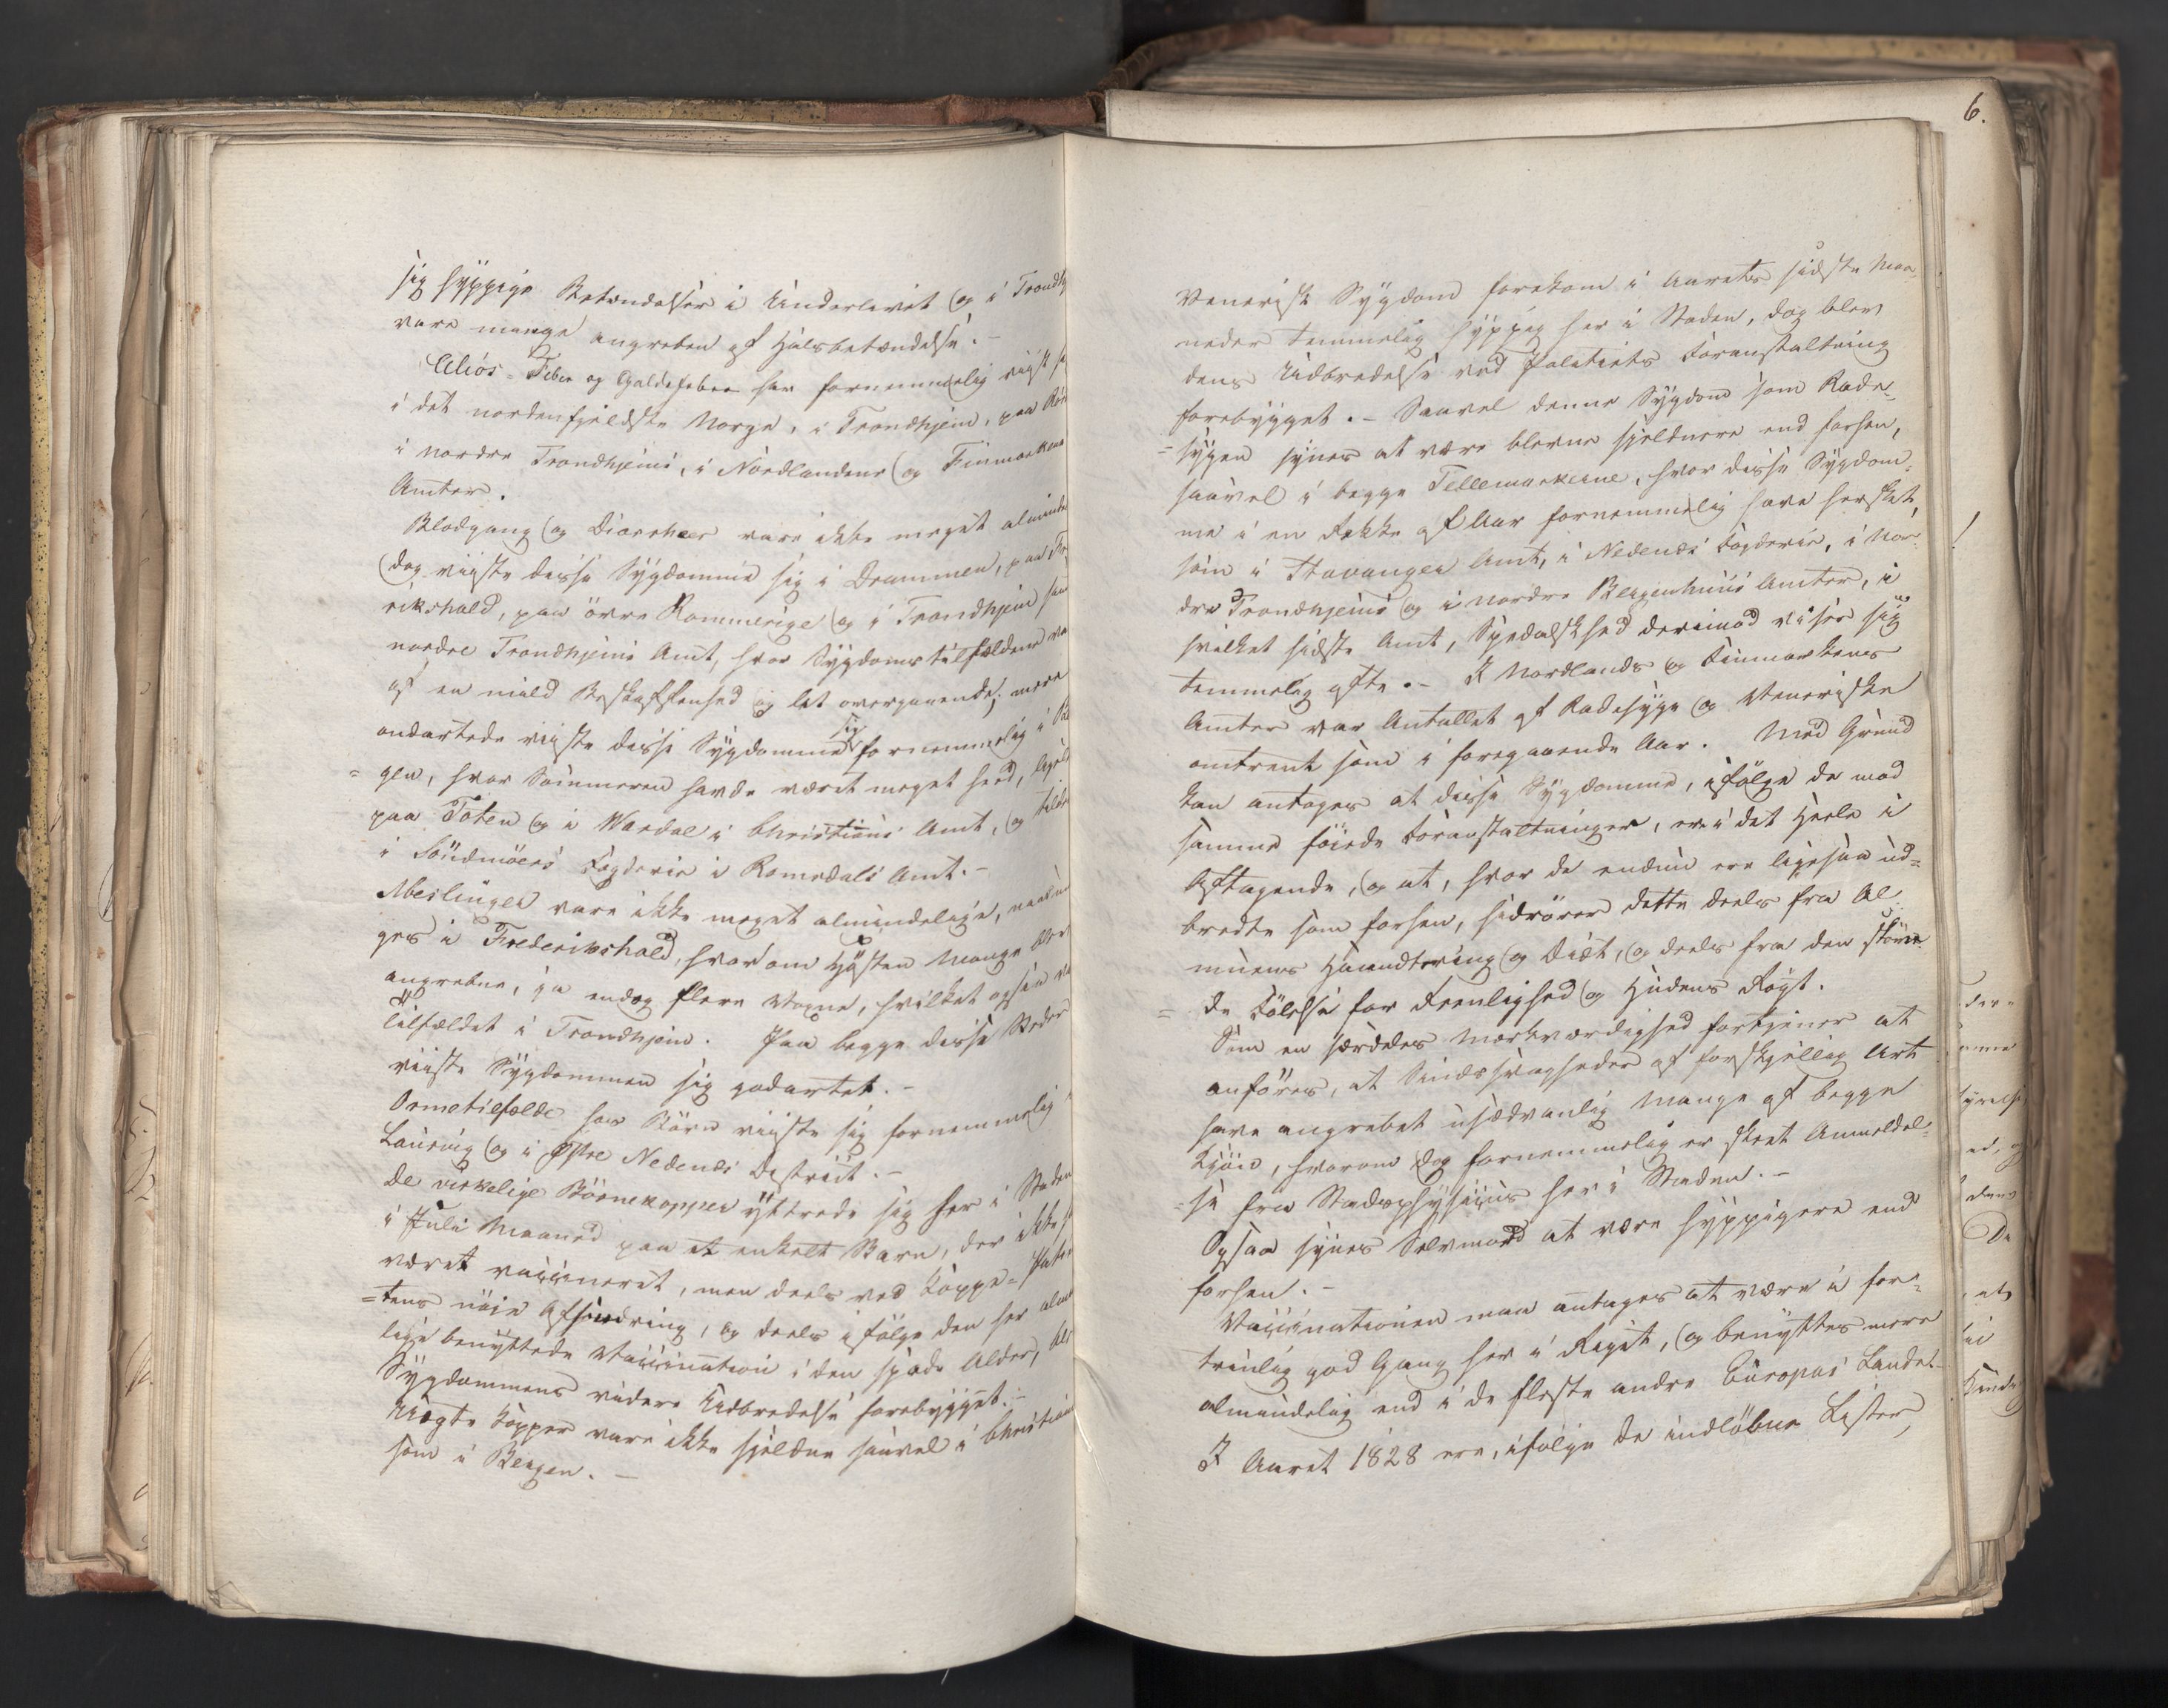 sig hyppige Betændelser i Underlivet og i Trondhj
vare mange angrebne af Halsbetændelse. –
Feber og Galdefeber har fornemmelig viist s
i det nordenfjeldske Norge, i Trondhjem, paa Rör
i nordre Trondhjems, i Nordlandene og Finmarkens
Amter.
Blodgang og Diarrheer vare ikke meget alminde
dog viiste disse Sygdomme sig i Drammen, paa Fre
rikshald, paa övre Rommerige og i Trondhjem sam
nordre Trondhjems Amt, hvor Sygdomstilfældene va
af en mild Beskaffenhed og let overgaaende; mere
ondartede viiste disse Sygdomme sig fornemmelig i Be
= gen, hvor Sommeren havde været meget heed, ligele
paa Toten og i Wardal i Christians Amt, og tilde
i Söndmöers Fogderie i Romsdals Amt. –
Meslinger vare ikke meget almindelige,
ges i Frederikshald, hvor om Hösten Mange blev
angrebne, ja endog flere Voxne, hvilket ogsaa va
Tilfældet i Trondhjem. Paa begge disse Steder
viiste Sygdommen sig godartet. –
Ormetilfælde hos Börn viiste sig fornemmelig i
Laurvig og i Østre Nedenæs District. –
De virkelige Börnekopper yttrede sig her i Staden
i Juli Maaned paa et enkelt Barn, der ikke h
været vaccineret, men deels ved Koppe-Patien
=tens nöie Afsondring, og deels ifölge den her almi
lige benyttede Vaccination i den spæde Alder, ble
Sygdommens videre Udbredelse forebygget. –
Uægte Kopper vare ikke sjeldne saavel i Christiania
som i Bergen. –
6.
Venerisk Sygdom forekom i Aarets sidste Maa-
neder temmelig hyppig her i Staden, dog blev
dens Udbredelse ved Politiets Foranstaltning
forebygget. – Saavel denne Sygdom som Rade-
=sygen synes at være blevne sjeldnere end forhen,
saavel i begge Tellemarkerne, hvor disse Sygdom-
me i en Række af Aar fornemmelig have hersket,
som i Stavanger Amt, i Nedenæs Fogderie, i Nor-
dre Trondhjems og i nordre Bergenhuus Amter, i
hvilket sidste Amt, Spedalskhed derimod viser sig
temmelig ofte. – I Nordlands og Finmarkens
Amter var Antallet af Radesyge og Veneriske
omtrent som i foregaaende Aar. Med Grund
kan antages at disse Sygdomme, ifölge de mod
samme föiede Foranstaltninger, ere i det Heele i
Aftagende, og at, hvor de endnu ere ligesaa ud=
bredte som forhen, hidrörer dette deels fra Al-
muens Haandtering og Diæt, og deels fra den
= de Fölelse for Reenlighed og Hudens Rögt.
Som en særdeles Mærkværdighed fortjener at
anföres, at Sindssvagheder af forskjellig Art
have angrebet usædvanlig Mange af begge
Kjön, hvorom dog fornemmelig er skeet Anmeldel-
=se fra Stadsphysicus her i Staden. –
Ogsaa synes Selvmord at være hyppigere end
forhen. –
Vaccinationen maa antages at være i for-
trinlig god Gang her i Riget, og benyttes mere
almindelig end i de fleste andre Europas Lande. –
I Aaret 1828 ere, ifölge de indlöbne Lister,